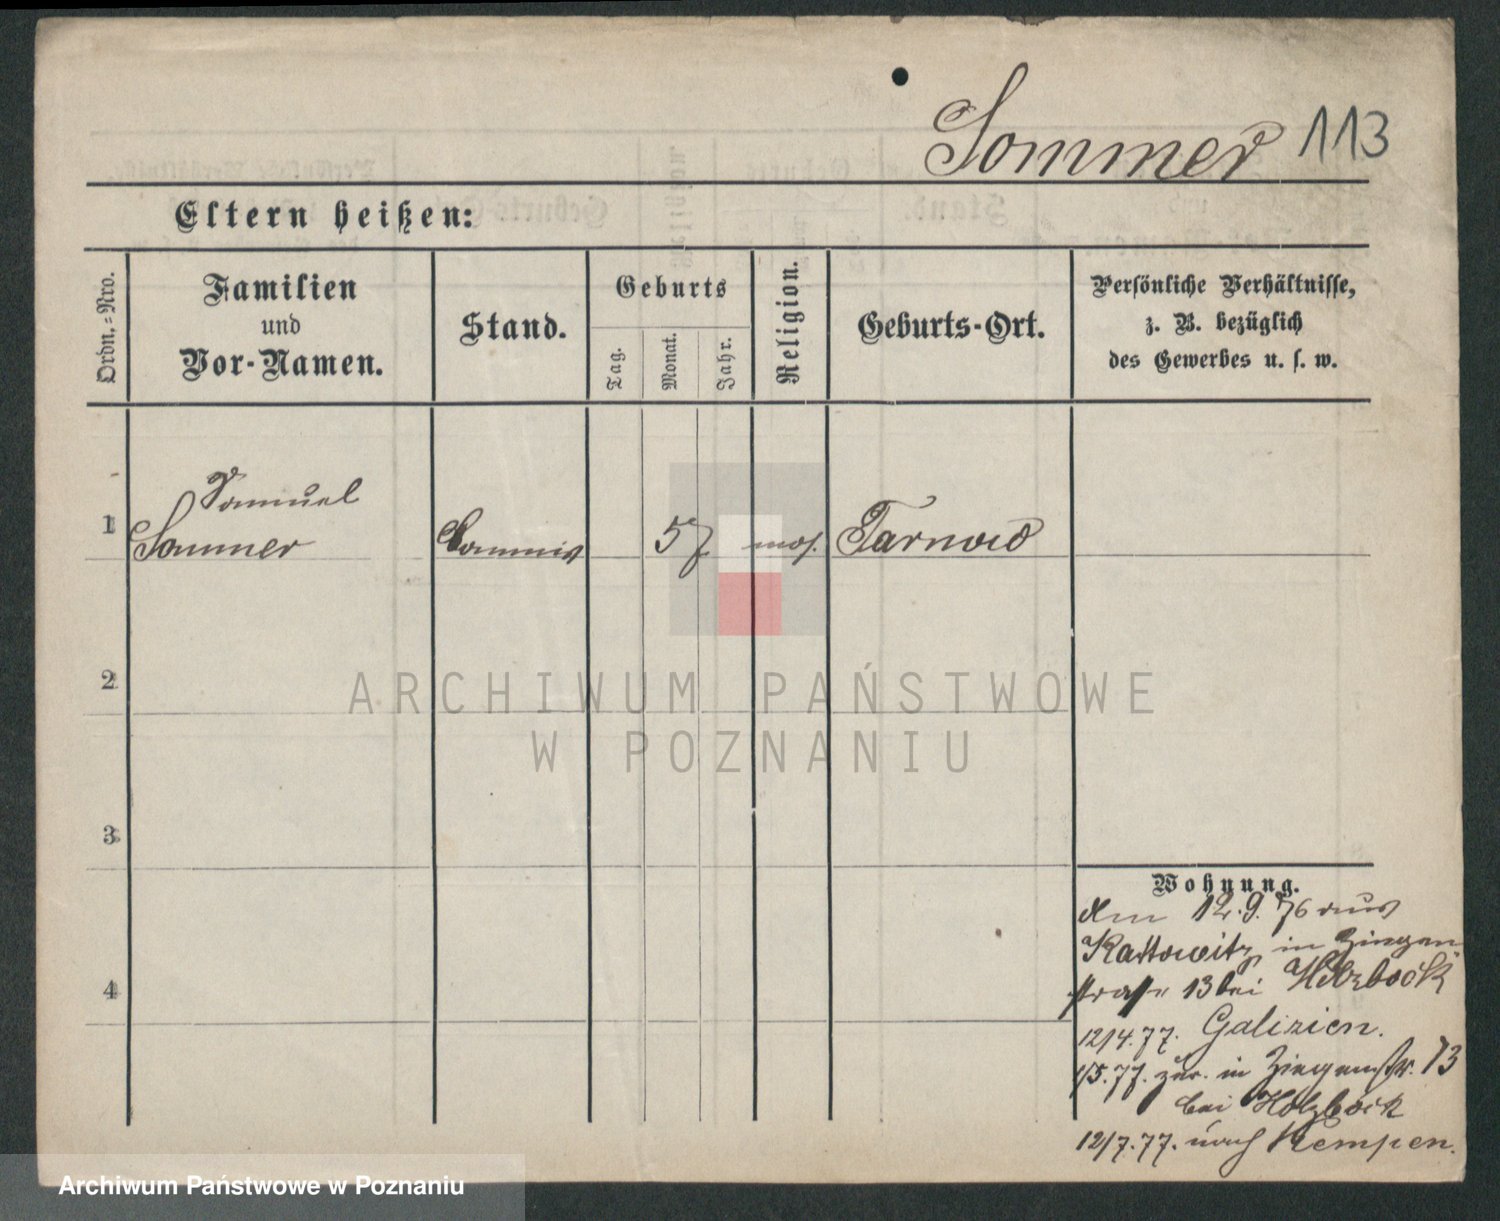 Sommer 113
Eltern heißen:
Ordn.-Nro.
Familien
und
Vor-Namen.
Stand.
Geburts
Tag.
Monat.
Jahr.
Religion.
Geburts-Ort.
Persönliche Verhältnisse,
z. B. bezüglich
des Gewerbes u. s. w.
1
Samuel
Sommer
Commis
57
mos.
Tarnow
2
ARCHIWUM PAŃSTWOWE
W POZNANIU
3
Wohnung.
12.9.76 aus
Kattowitz in Ziegen
straße 13 bei Holzbock
4
12/4.77. Galizien.
1/5.77. zur. in Ziegenstr. 13
bei Holzbock
12/7.77. nach Kempen.
Archiwum Państwowe w Poznaniu